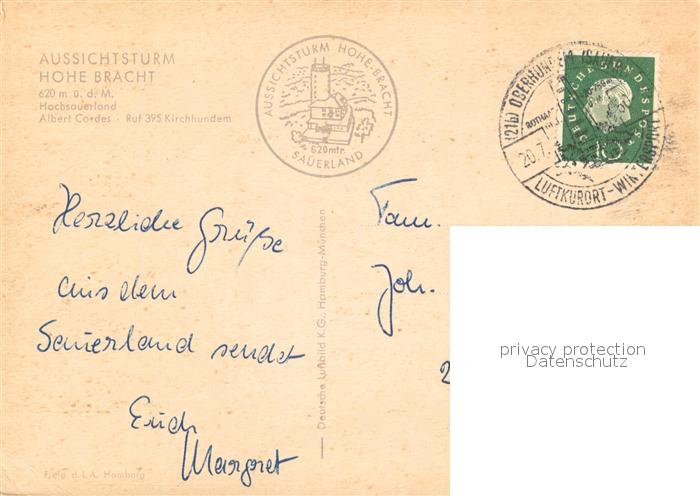 AUSSICHTSTURM
HOHE BRACHT
620 m ü. d. M.
Hochsauerland
Albert Cordes · Ruf 395 Kirchhundem
AUSSICHTSTURM HOHE-BRACHT
620mtr.
SAUERLAND
(21b) OBERHUNDEM (SAUERL
20.7.
LUFTKURORT-WINTERSPORT
DEUTSCHE BUNDESPOST
10
Herzliche Grüße
aus dem
Sauerland sendet
Erich
Margret
Fam.
Joh.
2
Deutsche Luftbild K.G., Hamburg-München
privacy protection
Datenschutz
Freig. d. L. A. Hamburg